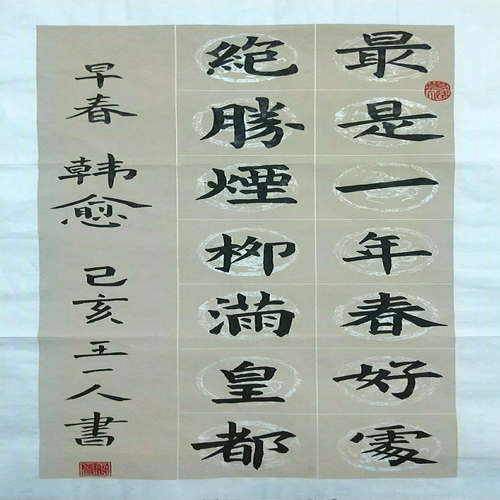 最是一年春好處
絕勝煙柳滿皇都
早春 韩愈 己亥 王一人書